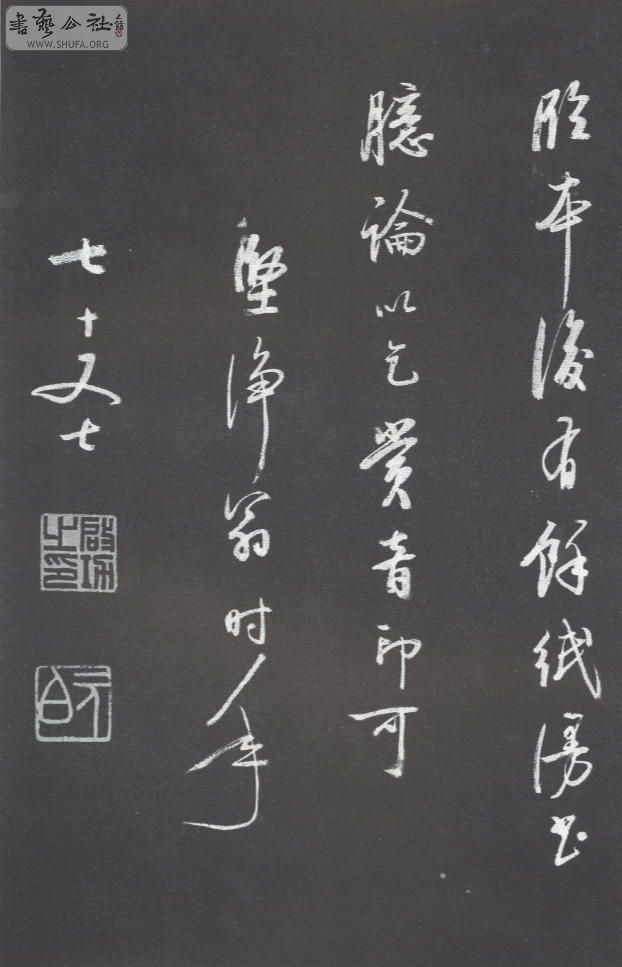 書藝公社
WWW.SHUFA.ORG
臨本後有餘紙漫书
臆論以乞賞音印可
堅浄翁时年
七十又七
啟功之印
元白